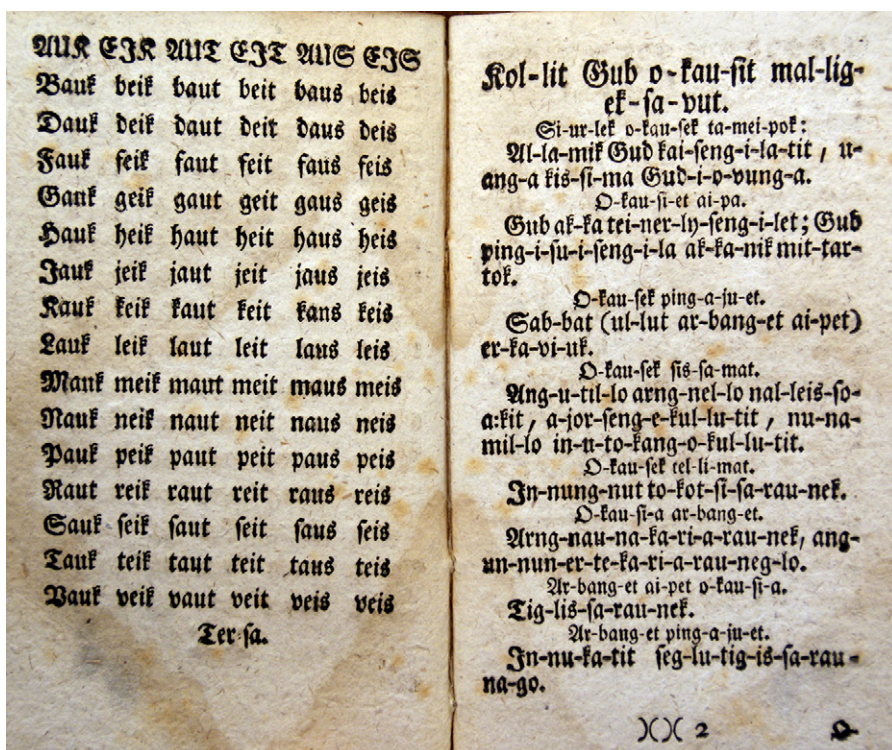 AUK EJK AUT EJT AUS EJS
Bauk beik baut beit baus beis
Dauk deik daut deit daus deis
Fauk feik faut feit faus feis
Gauk geik gaut geit gaus geis
Hauk heik haut heit haus heis
Jauk jeik jaut jeit jaus jeis
Kauk keik kaut keit kaus keis
Lauk leik laut leit laus leis
Mauk meik maut meit maus meis
Nauk neik naut neit naus neis
Pauk peik paut peit paus peis
Raut reik raut reit raus reis
Sauk ſeik ſaut ſeit ſaus ſeis
Tauk teik taut teit taus teis
Vauk veik vaut veit veis veis
Ter-ſa.
Kol-lit Gub o-kau-ſit mal-lig-
ek-ſa-vut.
Si-ur-lek o-kau-ſek ta-mei-pok:
Al-la-mik Gud kai-ſeng-i-la-tit, u-
ang-a kis-ſi-ma Gud-i-o-vung-a.
O-kau-ſi-et ai-pa.
Gub ak-ka tei-ner-ly-ſeng-i-let; Gub
ping-i-ſu-i-ſeng-i-la ak-ka-nik mit-tar-
tok.
O-kau-ſek ping-a-ju-et.
Sab-bat (ul-lut ar-bang-et ai-pet)
er-ka-vi-uk.
O-kau-ſek sis-ſa-mat.
Ang-u-til-lo arng-nel-lo nal-leis-ſo-
a:kit, a-jor-ſeng-e-kul-lu-tit, nu-na-
mil-lo in-u-to-kang-o-kul-lu-tit.
O-kau-ſek tel-li-mat.
In-nung-nut to-kot-ſi-ſa-rau-nek.
O-kau-ſi-a ar-bang-et.
Arng-nau-na-ka-ri-a-rau-nek, ang-
un-nun-er-te-ka-ri-a-rau-neg-lo.
Ar-bang-et ai-pet o-kau-ſi-a.
Tig-lis-ſa-rau-nek.
Ar-bang-et ping-a-ju-et.
In-nu-ka-tit ſeg-lu-tig-is-ſa-rau-
na-go.
)()( 2 O-